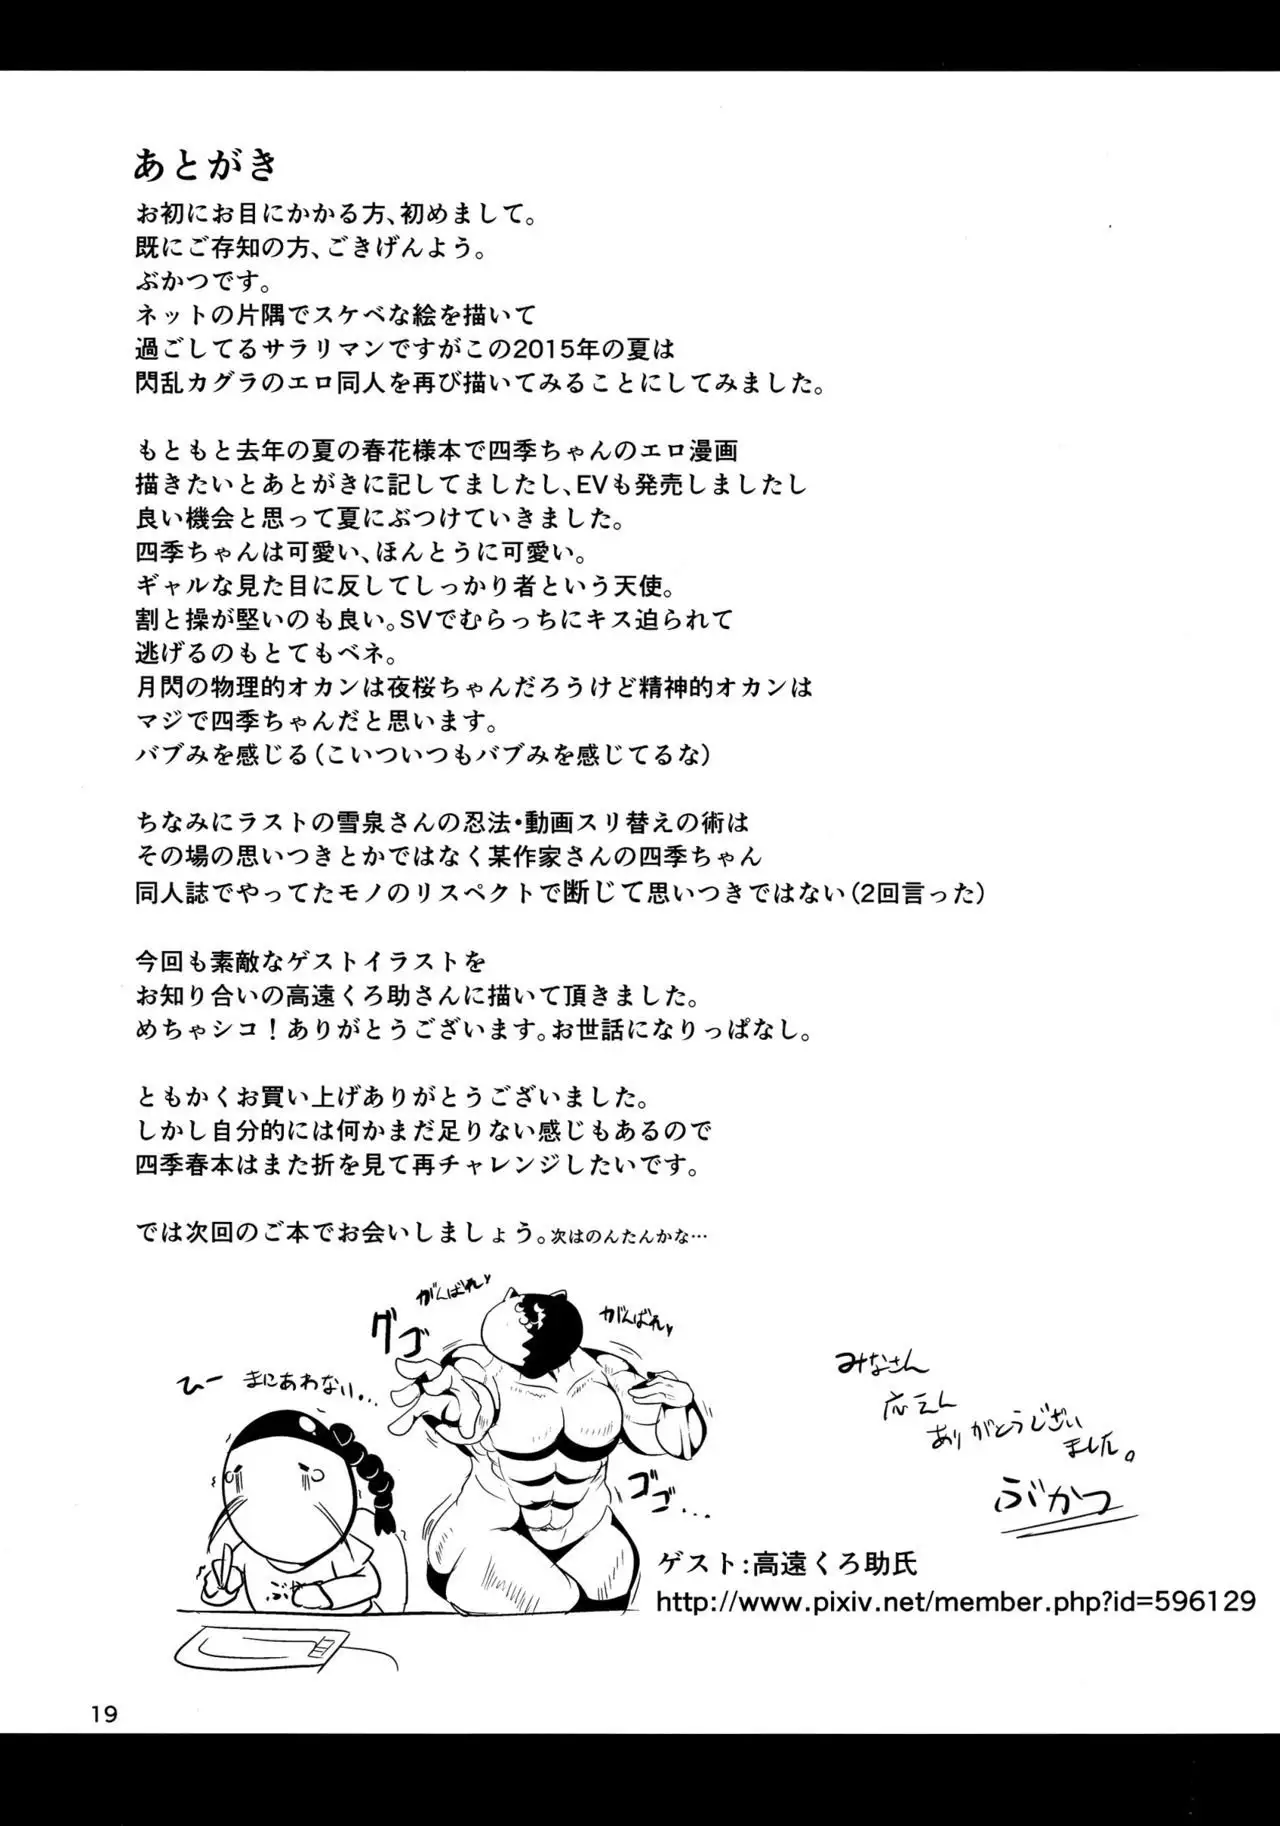 あとがき
お初にお目にかかる方、初めまして。
既にご存知の方、ごきげんよう。
ぶかつです。
ネットの片隅でスケベな絵を描いて
過ごしてるサラリマンですがこの2015年の夏は
閃乱カグラのエロ同人を再び描いてみることにしてみました。
もともと去年の夏の春花様本で四季ちゃんのエロ漫画
描きたいとあとがきに記してましたし、EVも発売しましたし
良い機会と思って夏にぶつけていきました。
四季ちゃんは可愛い、ほんとうに可愛い。
ギャルな見た目に反してしっかり者という天使。
割と操が堅いのも良い。SVでむらっちにキス迫られて
逃げるのもとてもベネ。
月閃の物理的オカンは夜桜ちゃんだろうけど精神的オカンは
マジで四季ちゃんだと思います。
バブみを感じる（こいついつもバブみを感じてるな）
ちなみにラストの雪泉さんの忍法・動画スリ替えの術は
その場の思いつきとかではなく某作家さんの四季ちゃん
同人誌でやってたモノのリスペクトで断じて思いつきではない（2回言った）
今回も素敵なゲストイラストを
お知り合いの高遠くろ助さんに描いて頂きました。
めちゃシコ！ありがとうございます。お世話になりっぱなし。
ともかくお買い上げありがとうございました。
しかし自分的には何かまだ足りない感じもあるので
四季春本はまた折を見て再チャレンジしたいです。
では次回のご本でお会いしましょう。次はのんたんかな…
がんばれ♥
がんばれ♥
グゴゴ
ひー まにあわない…
ゴゴゴ…
ぶか
みなさん
応えん
ありがとうござい
ました。
ぶかつ
ゲスト：高遠くろ助氏
http://www.pixiv.net/member.php?id=596129
19